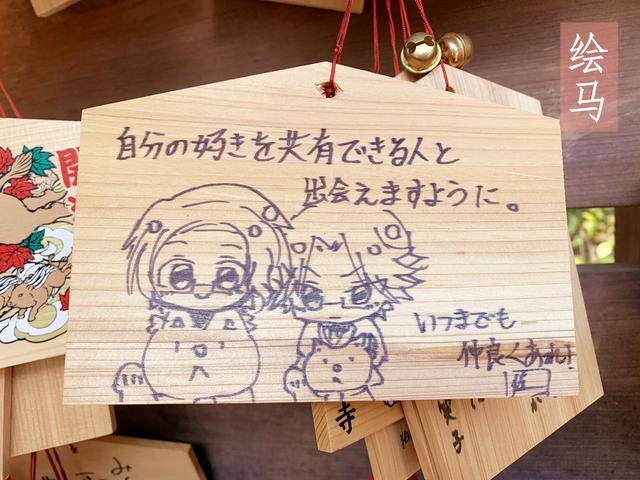 絵马
自分の好きを共有できる人と
出会えますように。
いつまでも
仲良くあれ！
開
寺
子